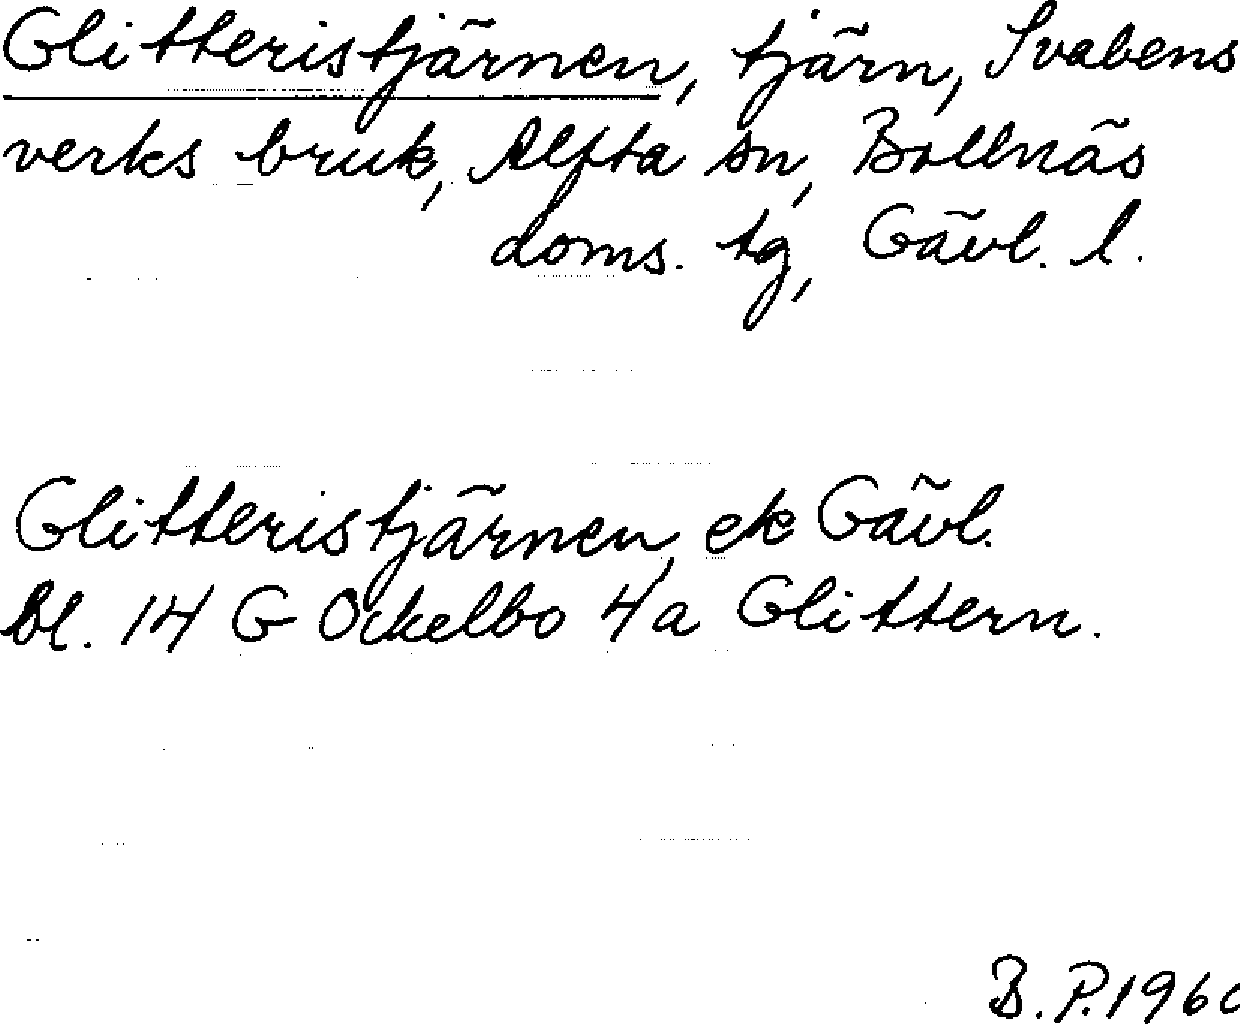 Glitteristjärnen, tjärn, Svabens
verks bruk, Alfta sn, Bollnäs
doms. tg, Gävl. l.
Glitteristjärnen, ek Gävl.
bl. 14 G Ockelbo 4a Glittern.
B. P. 1960